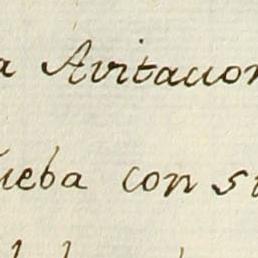 a Avitacion
ueba con su